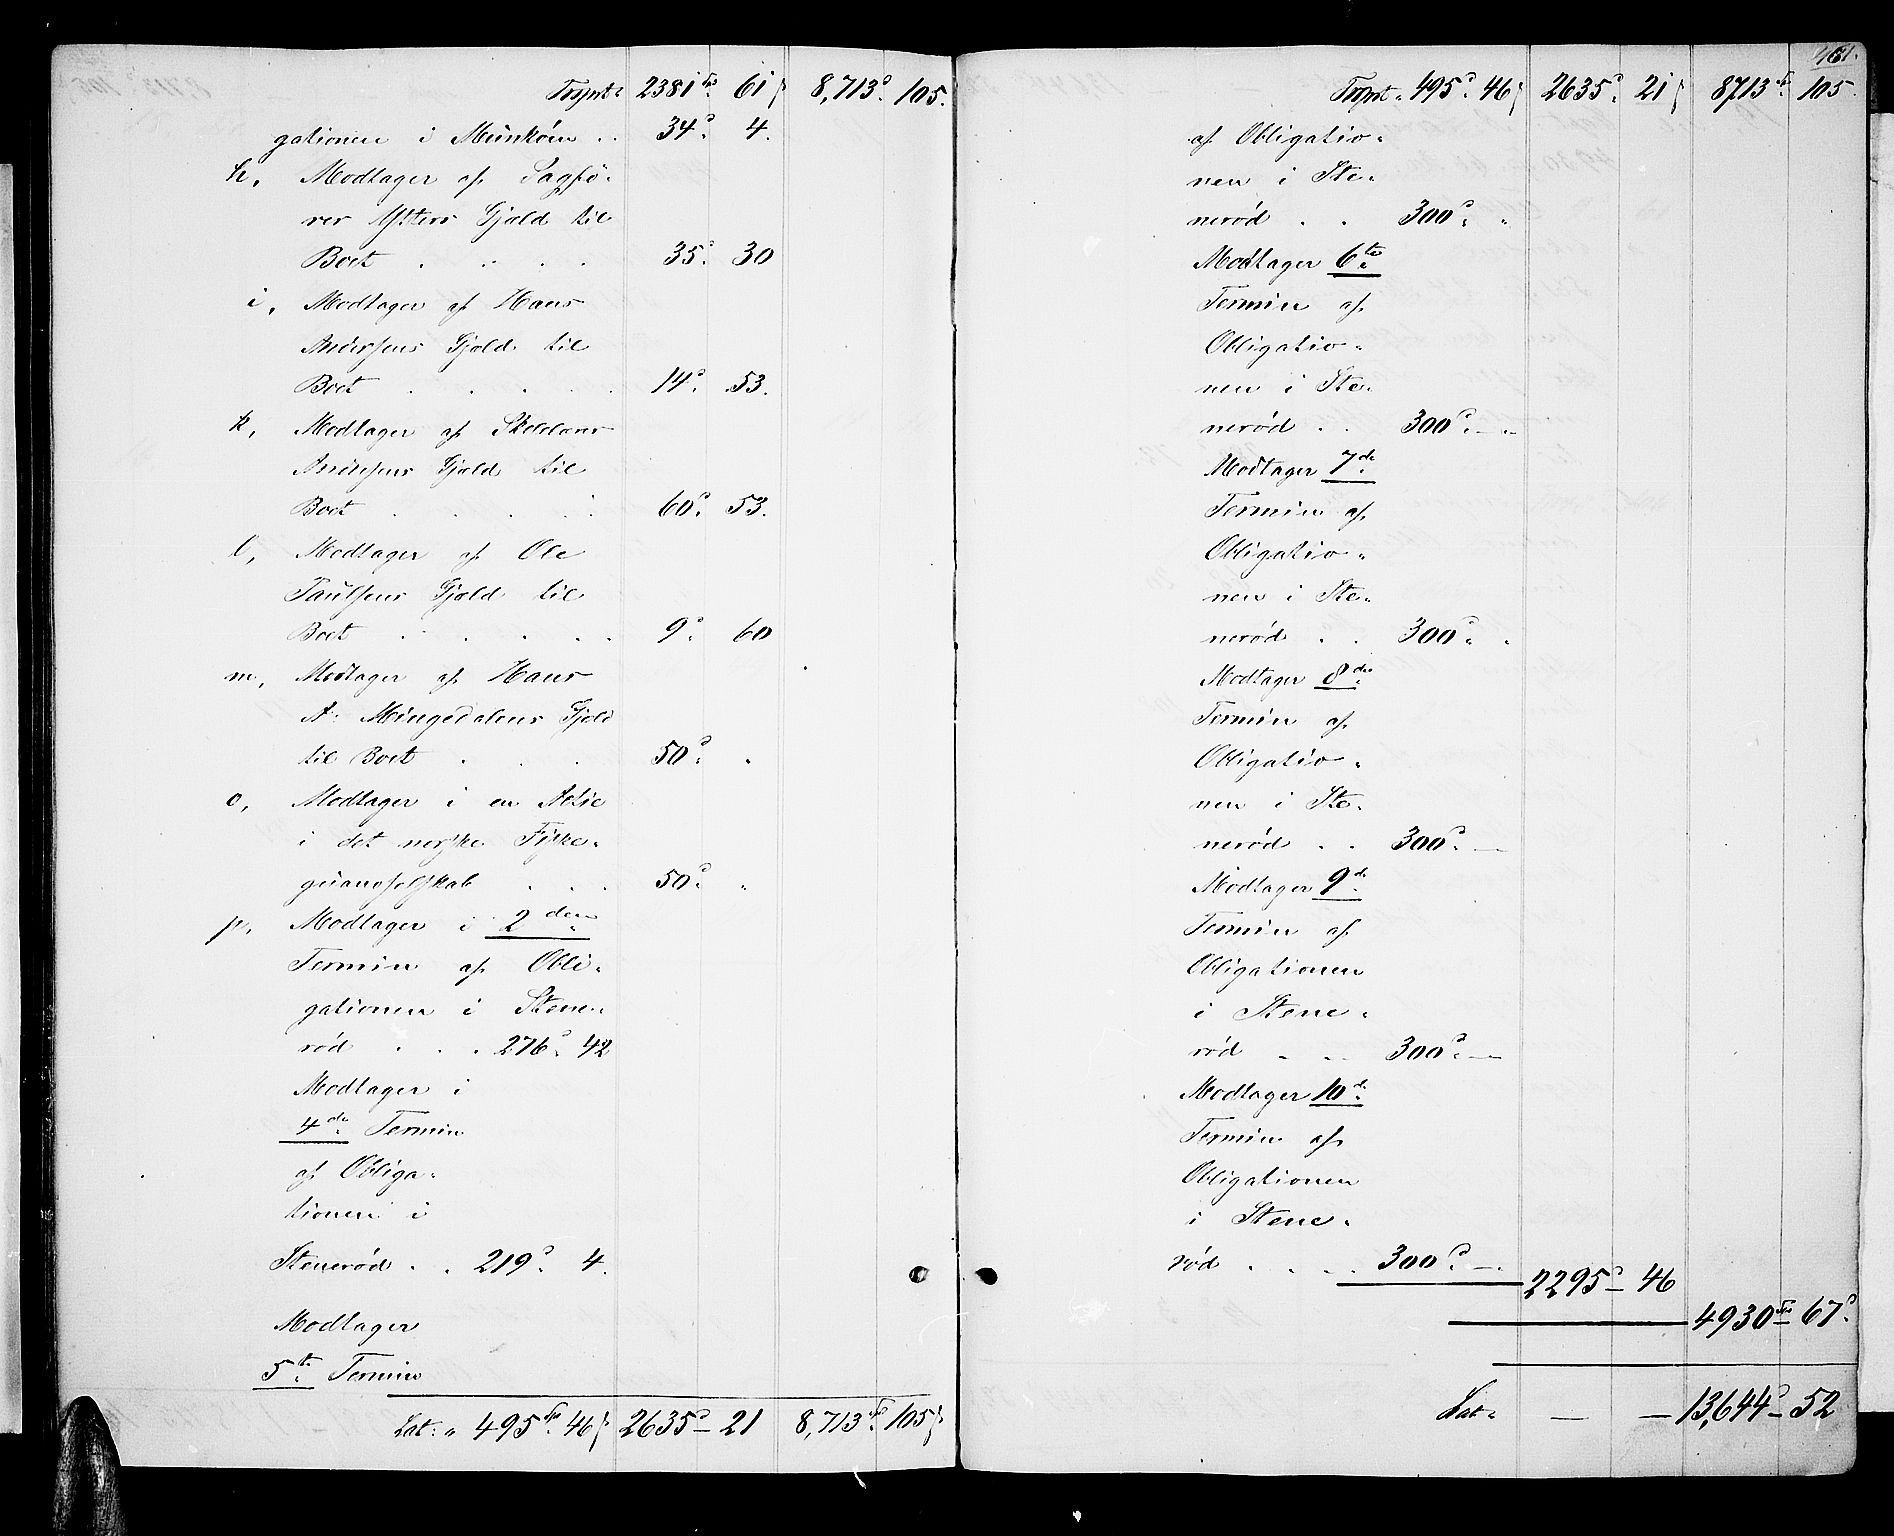 Trsprt. 2381 Sp. 61 ß 8,713 d. 105.
gationen i Munkøen . . 34 d. 4.
h, Modtager af Sagfø-
rer Ysters Gjæld til
Boet . . . . 35 d. 30
i, Modtager af Hans
Andersens Gjæld til
Boet . . . . . 14 d. 53.
k, Modtager af
Andersens Gjæld til
Boet . . . . . 60 d. 53.
l, Modtager af Ole
Paulsens Gjæld til
Boet . . . . . 9 d. 60
m, Modtager af Hans
A. Mingedalens Gjæld
til Boet . . . 50 d. "
o, Modtager i en Actie
i det norske Fiske-
guanoselskab . . . 50 d. "
p, Modtager i 2den
Termin af Obli-
gationen i Stene-
rød . . . 276 d. 42
Modtager i
4de Termin
af Obliga-
tionen i
Stenerød . . 219 d. 4.
Modtager
5te Termin
Lat. 495 Sp. 46 ß 2635 d. 21 8,713 Sp. 105 ß
461.
Trsprt. 495 d. 46 ß 2635 d. 21 ß 8713 Sp. 105.
af Obligatio-
nen i Ste-
nerød . . 300 d. "
Modtager 6te
Termin af
Obligatio-
nen i Ste-
nerød . . 300 d. — "
Modtager 7de
Termin af
Obligatio-
nen i Ste-
nerød . . 300 d. "
Modtager 8de
Termin af
Obligatio-
nen i Ste-
nerød . . 300 d. —
Modtager 9de
Termin af
Obligationen
i Stene-
rød . . . 300 d. —
Modtager 10de
Termin af
Obligationen
i Stene-
rød . . . . 300 d. —
2295 d. — 46
4930 Sp. — 67 ß
Lat. — — 13,644 d. — 52